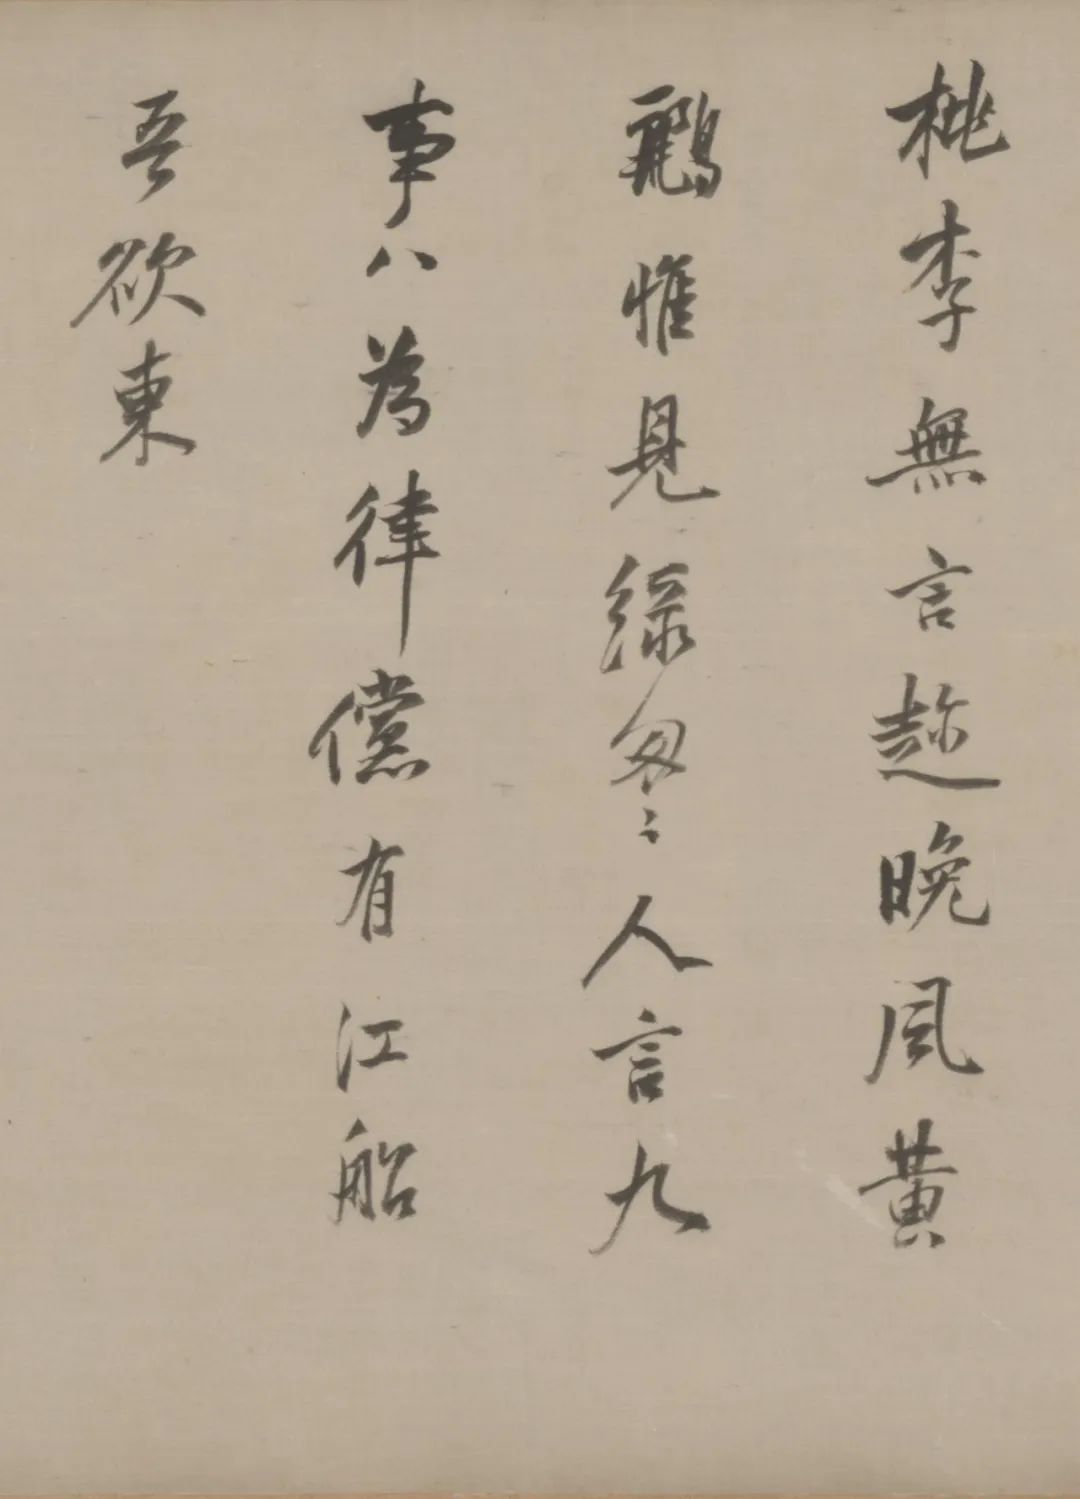 桃李無言趂晚風黃
鸝惟見綠怱〻人言九
事八為律儻有江船
吾欲東